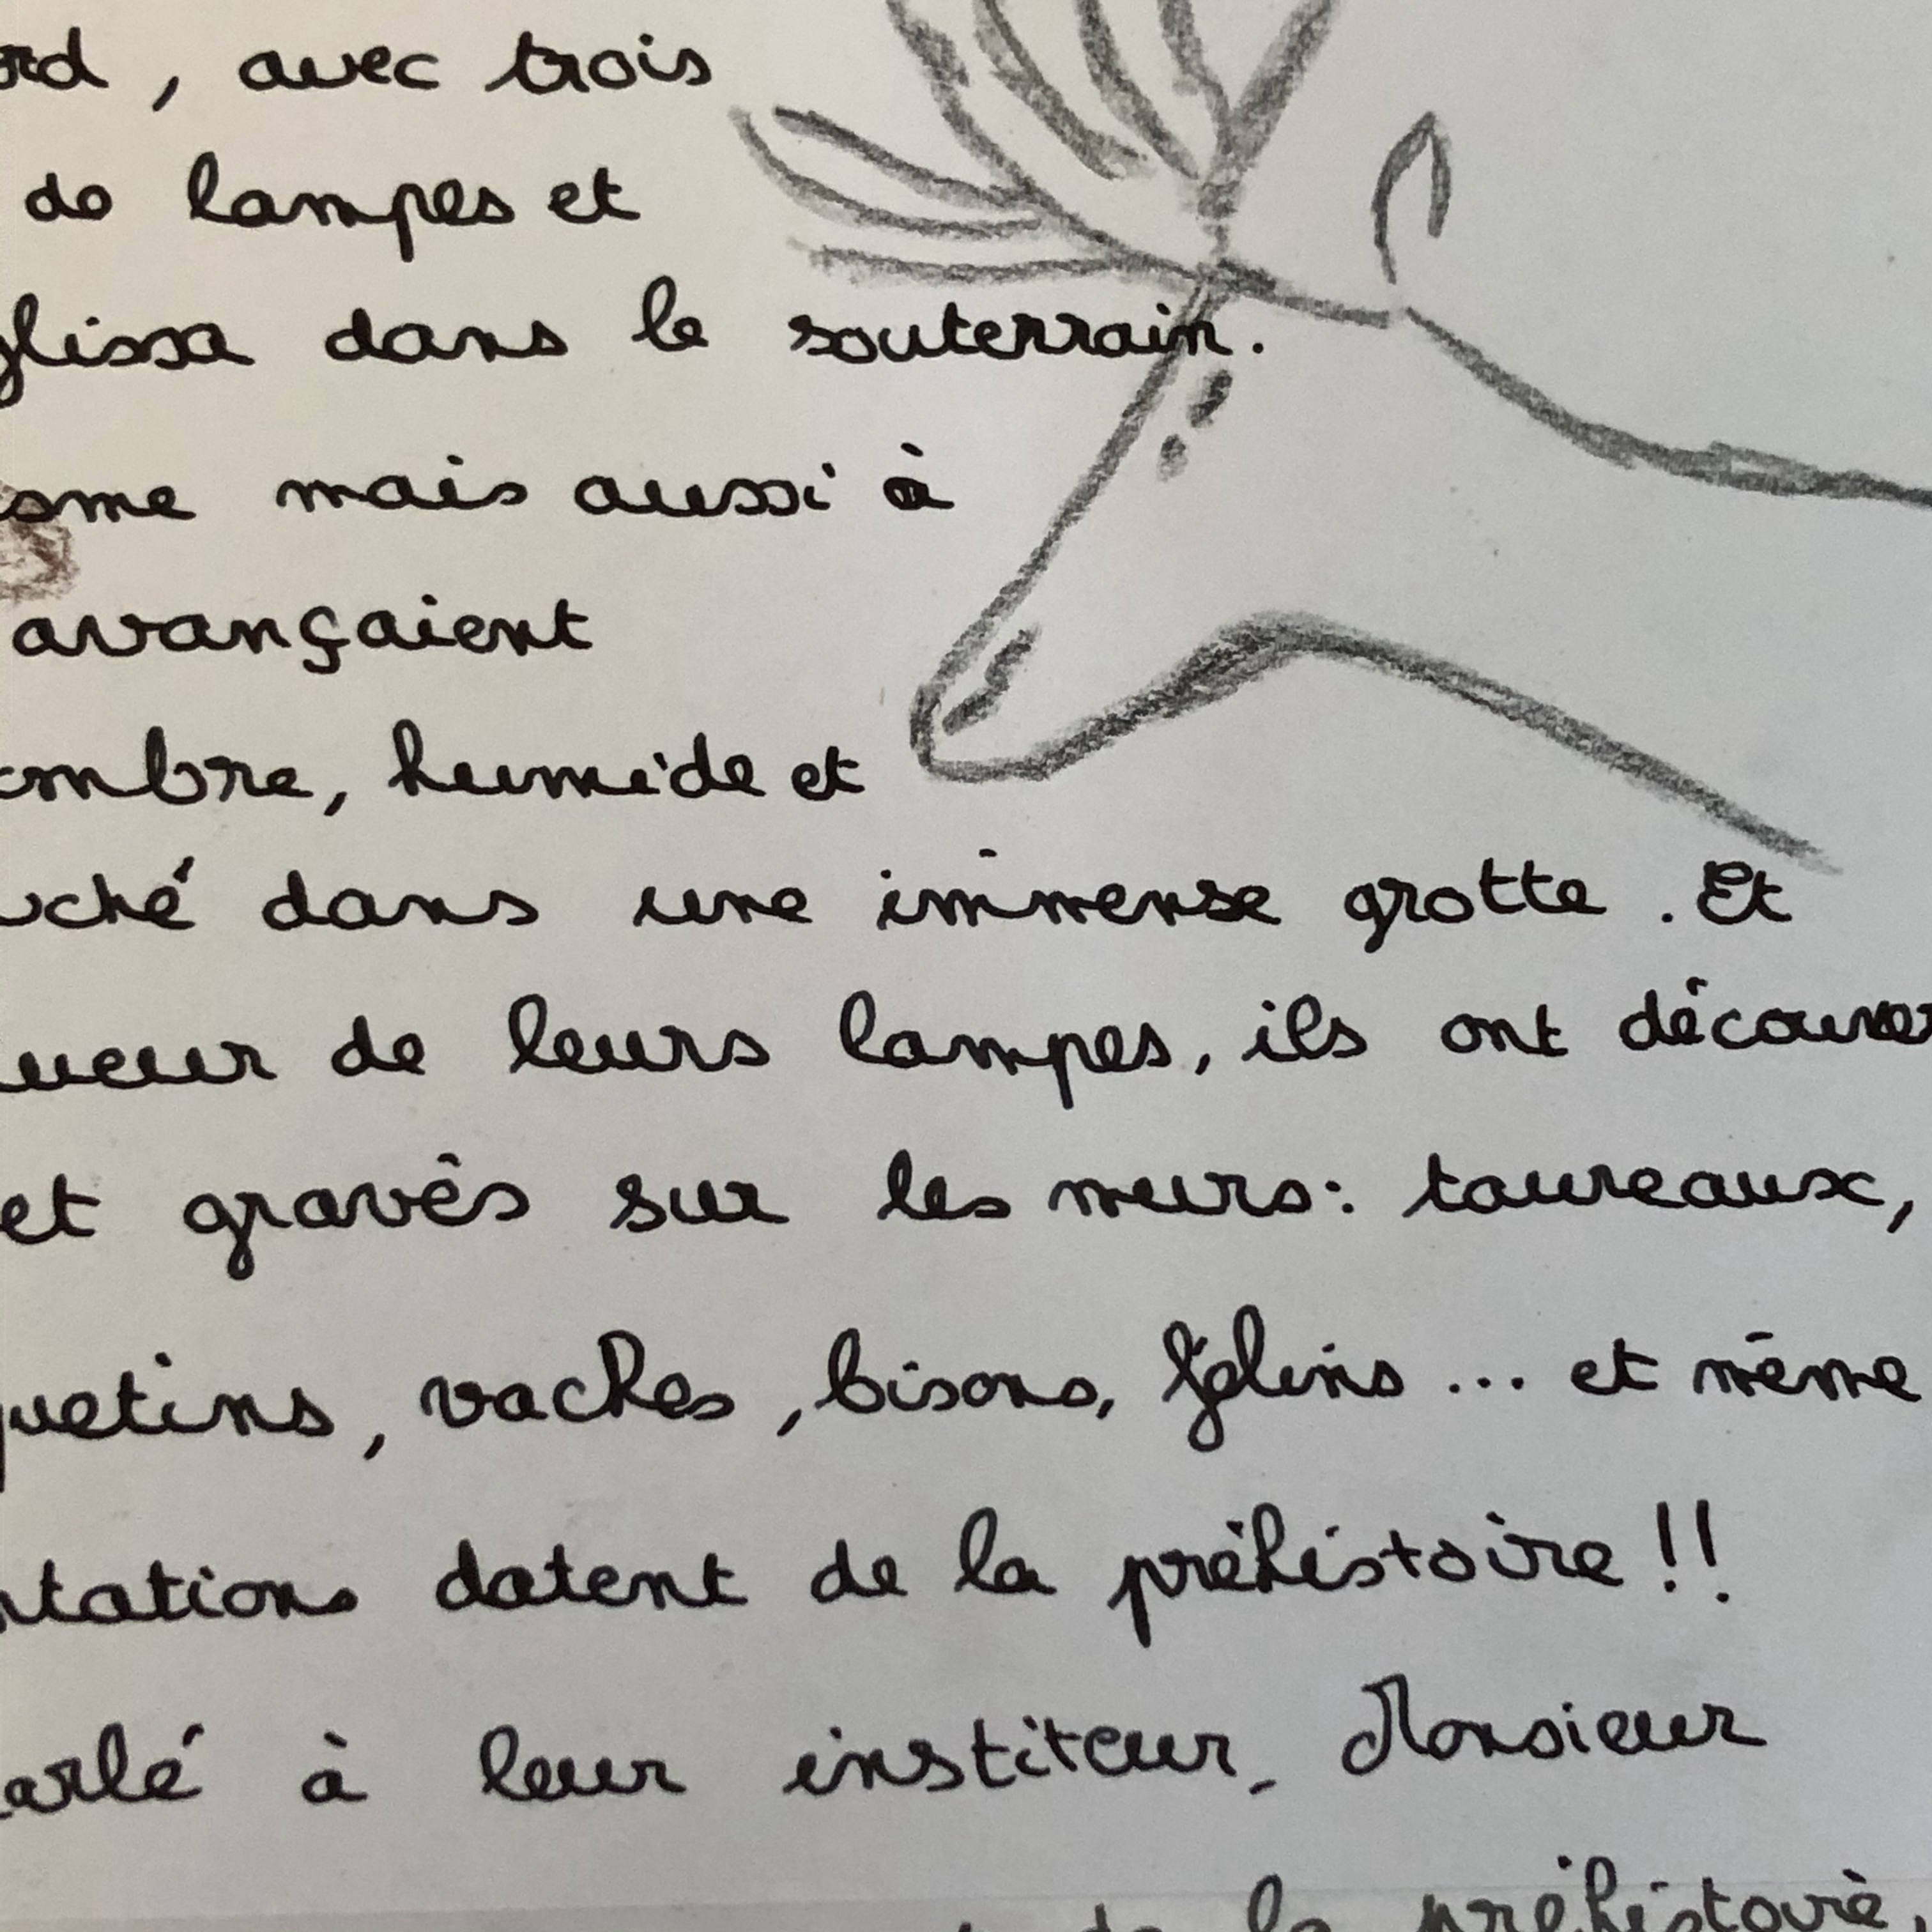 ord, avec trois
de lampes et
glissa dans le souterrain.
asme mais aussi à
avançaient
ombre, humide et
uché dans une immense grotte. Et
ueur de leurs lampes, ils ont découver
et gravés sur les murs: taureaux,
quetins, vaches, bisons, félins... et même
ntations datent de la préhistoire!!
arlé à leur institeur, Monsieur
de la préhistoire,